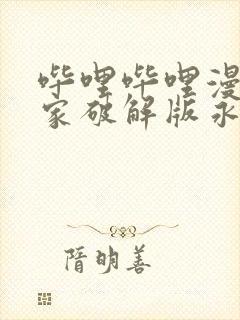 哔哩哔哩漫
家破解版永
隋明善